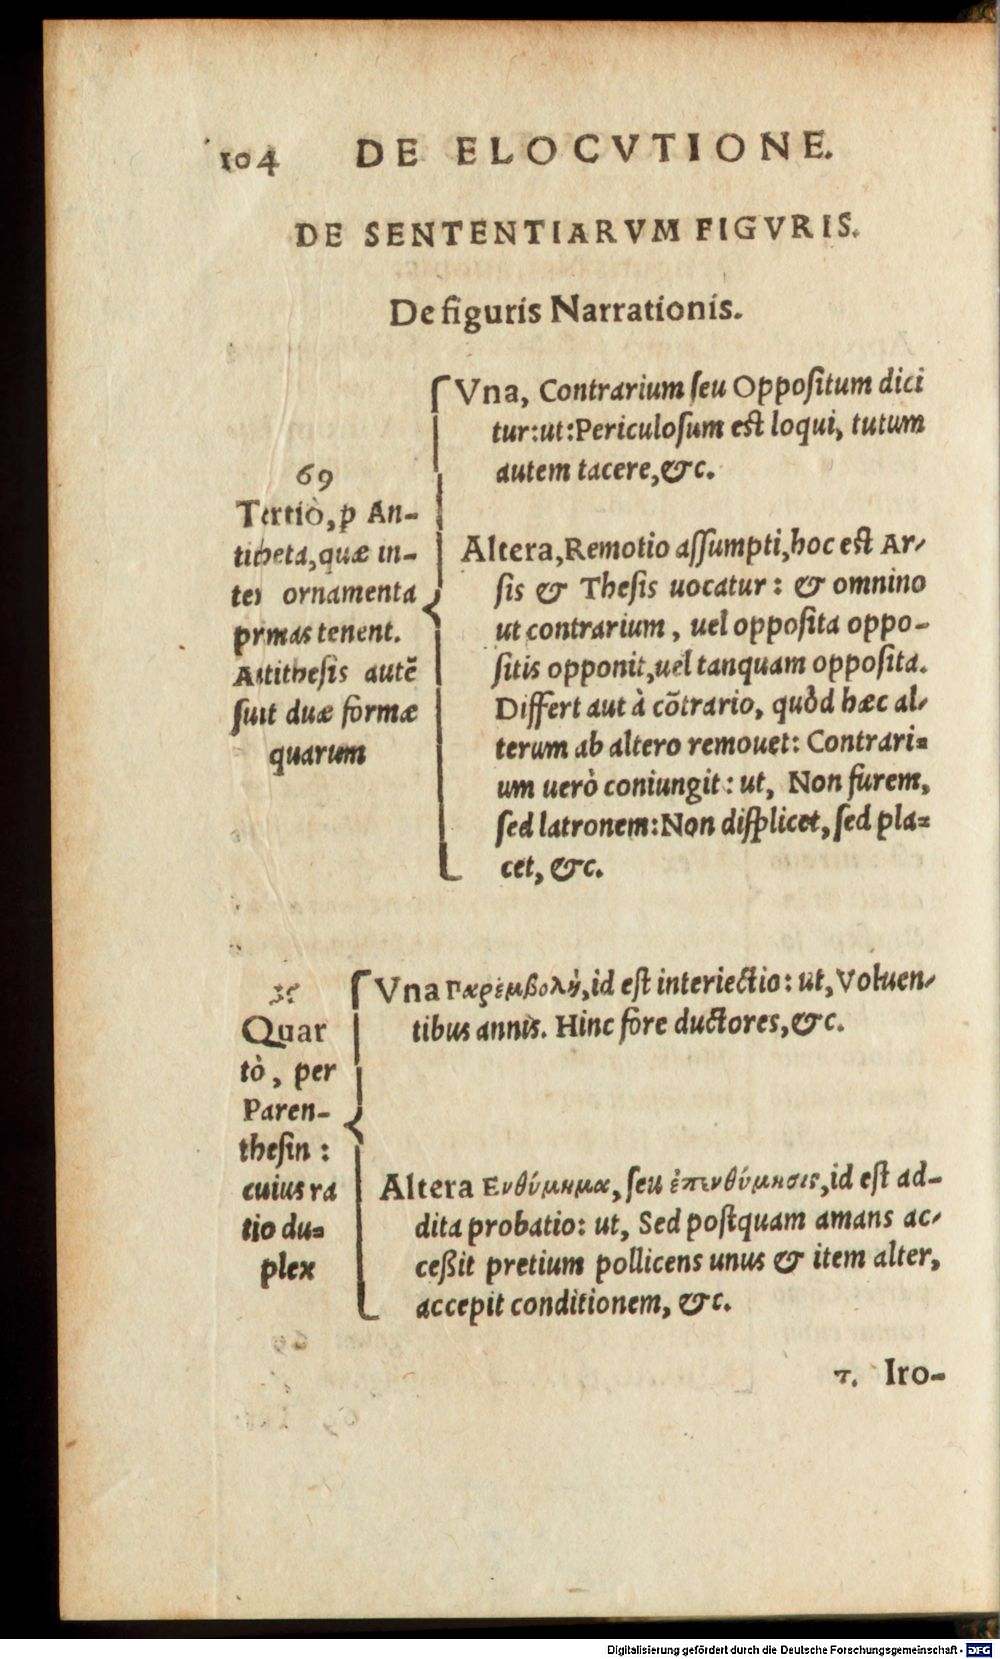 104 DE ELOCVTIONE.
DE SENTENTIARVM FIGVRIS.
De figuris Narrationis.
69
Tertiò, ꝑ An-
titheta, quæ in-
ter ornamenta
primas tenent.
Antithesis autẽ
sunt duæ formæ
quarum
Vna, Contrarium seu Oppositum dici
tur: ut: Periculosum est loqui, tutum
autem tacere, &c.
Altera, Remotio assumpti, hoc est Ar-
sis & Thesis uocatur: & omnino
ut contrarium, uel opposita oppo-
sitis opponit, uel tanquam opposita.
Differt aut à cõtrario, quòd hæc al-
terum ab altero remouet: Contrari-
um uerò coniungit: ut, Non furem,
sed latronem: Non displicet, sed pla-
cet, &c.
Quar
tò, per
Paren-
thesin:
cuius ra
tio du-
plex
Vna Παρέμβολὴ, id est interiectio: ut, Voluen-
tibus annis. Hinc fore ductores, &c.
Altera Ενθύμημα, seu ἐπενθύμησις, id est ad-
dita probatio: ut, Sed postquam amans ac-
ceßit pretium pollicens unus & item alter,
accepit conditionem, &c.
Iro-
Digitalisierung gefördert durch die Deutsche Forschungsgemeinschaft - DFG